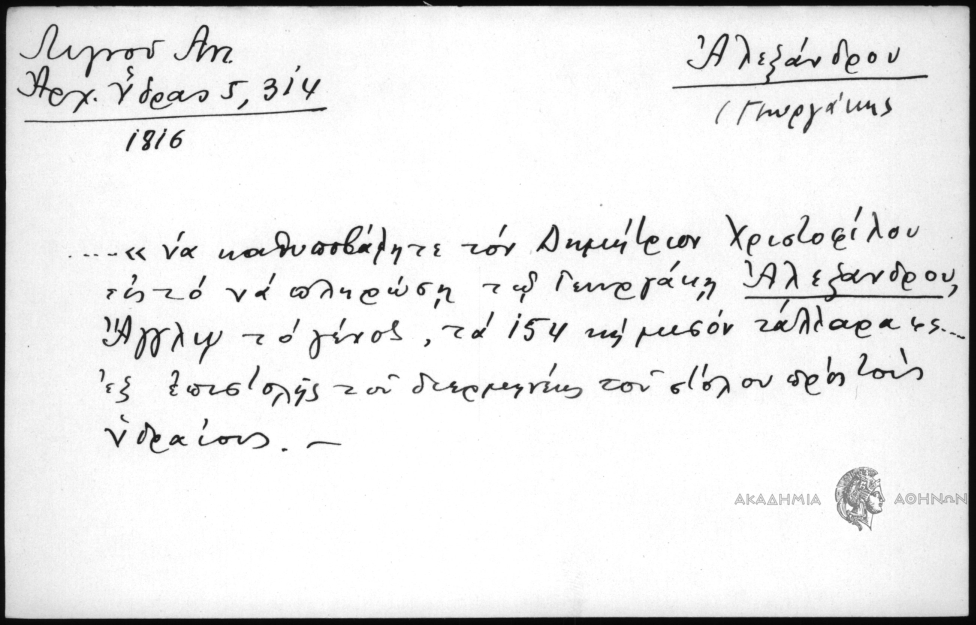 Λιγνού Αντ.
Ἀρχ. Ὕδρας 5, 314
1816
Ἀλεξάνδρου
(Γεωργάκης
....« νά καθυποβάλητε τόν Δημήτριον Χριστοφίλου
εἰς τό νά πληρώσῃ τῷ Γεωργάκῃ Ἀλεξάνδρου,
Ἄγγλῳ τό γένος, τά 154 καί μισόν τάλλαρα
ἐξ ἐπιστολῆς τοῦ διερμηνέως τοῦ στόλου πρός τούς
Ὑδραίους. —
ΑΚΑΔΗΜΙΑ ΑΘΗΝΩΝ